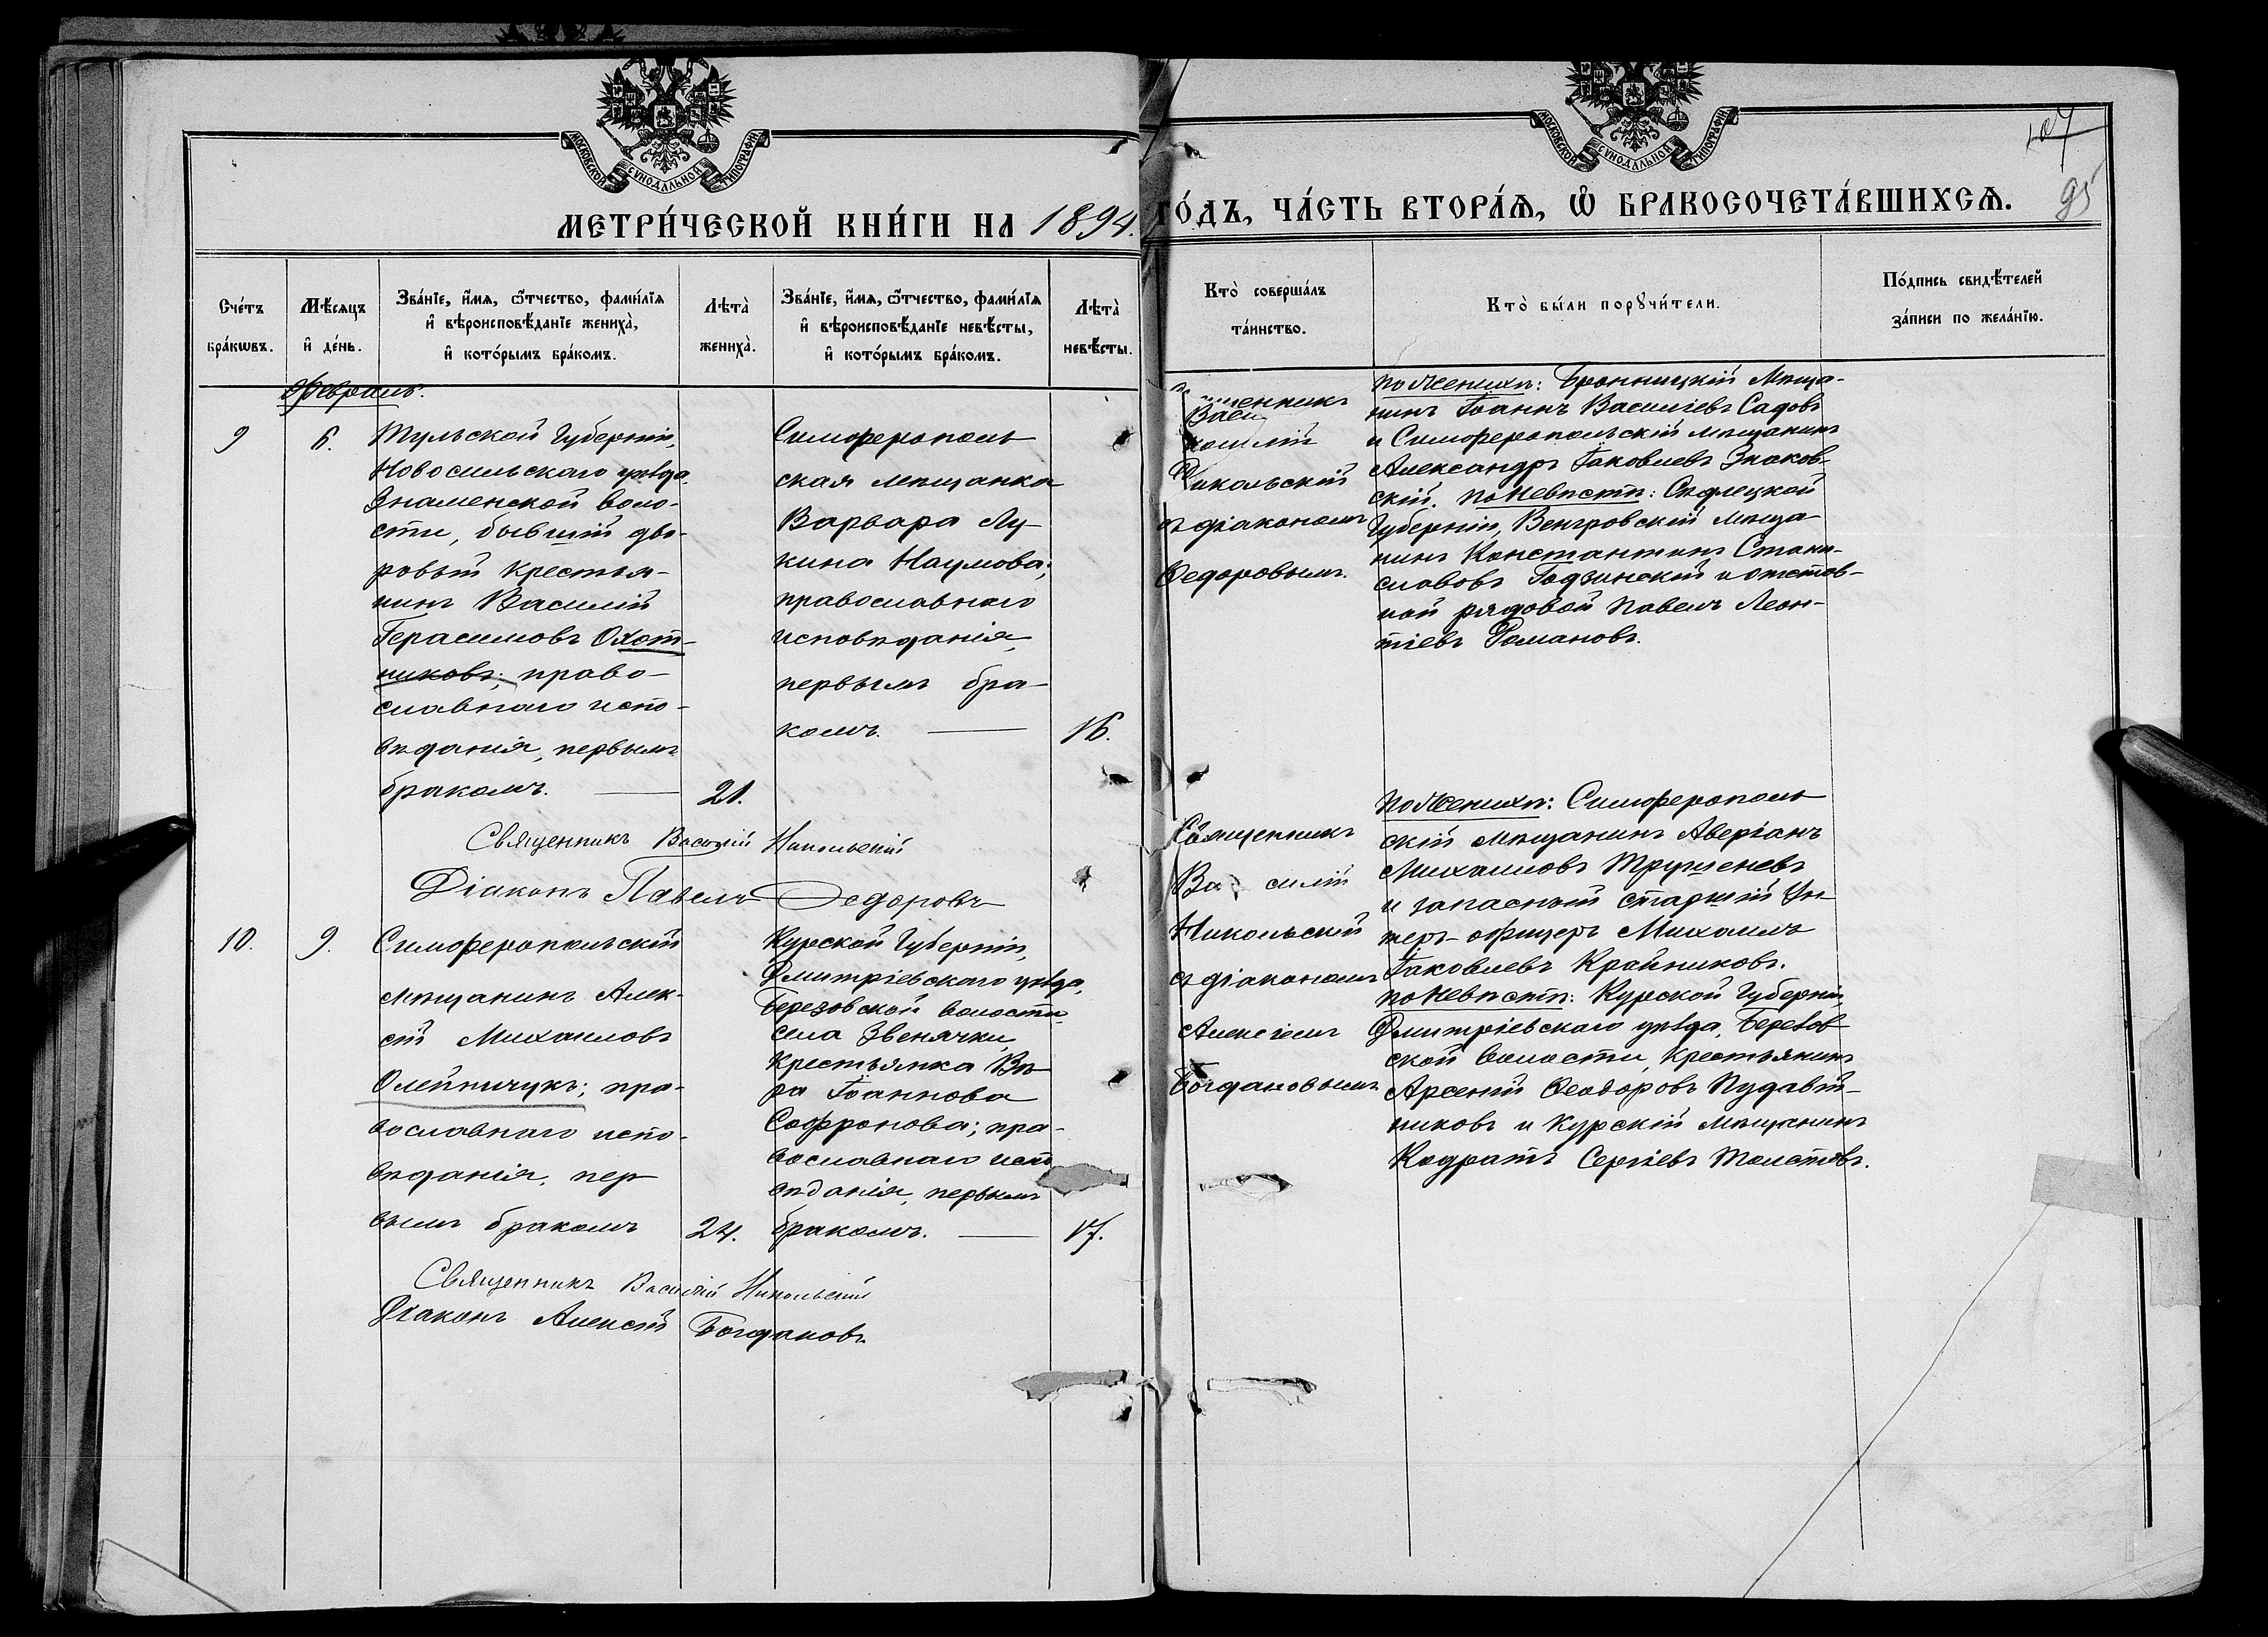 МОСКОВСКОЙ СѴНОДАЛЬНОЙ ТИПОГРАФІИ
МОСКОВСКОЙ СѴНОДАЛЬНОЙ ТИПОГРАФІИ
107
95
МЕТРИ́ЧЕСКОЙ КНИ́ГИ НА 1894. ГО́ДЪ, ЧА́СТЬ ВТОРА́Ѧ, Ѽ БРАКОСОЧЕТА́ВШИХСѦ.
Сче́тъ
бра́кѡвъ.
Мѣ́сѧцъ
и҆ де́нь.
Зва́нїе, и҆́мѧ, ѻ҆́тчество, фами́лїѧ
и҆ вѣроисповѣ́данїе жениха̀,
и҆ кото́рымъ бра́комъ.
Лѣта̀
жениха̀.
Зва́нїе, и҆́мѧ, ѻ҆́тчество, фами́лїѧ
и҆ вѣроисповѣ́данїе невѣ́сты,
и҆ кото́рымъ бра́комъ.
Лѣта̀
невѣ́сты.
Кто̀ соверша́лъ
та́инство.
Кто̀ бы́ли порꙋчи́тели.
По́дпись свидѣ́телей
за́писи по жела́нїю.
Февраль.
9
6.
Тульской Губерніи,
Новосильскаго уѣзда,
Знаменской воло-
сти, бывшій дво-
ровый крестья-
нинъ Василій
Герасимовъ Охот-
никовъ; право-
славнаго испо-
вѣданія, первымъ
бракомъ.
21.
Симферополь
ская мѣщанка
Варвара Лу-
кина Наумова;
православнаго
исповѣданія,
первымъ бра-
комъ.
16.
Никольскій
съ діакономъ
Федоровымъ.
По женихѣ: Бронницкій мѣща-
нинъ Іоаннъ Василіевъ Садовъ
и Симферопольскій мѣщанинъ
Александръ Іаковлевъ Знаков-
скій. По невѣстѣ: Сѣдлецкой
Губерніи, Венгровскій мѣща-
нинъ Константинъ Стани-
славовъ Годзинскій и отстав-
ной рядовой Павелъ Леон-
тіевъ Романовъ.
Священникъ Василій Никольскій
Діаконъ Павелъ Ѳедоровъ
10.
9.
Симферопольскій
мѣщанинъ Алек-
сій Михаиловъ
Олейничукъ; пра-
вославнаго испо-
вѣданія, пер
вымъ бракомъ
24.
Курской Губерніи,
Дмитріевскаго уѣзда,
Березовской волости,
села Звенячки,
крестьянка Вѣ-
ра Іоаннова
Софронова; пра-
вославнаго испо
вѣданія, первымъ
бракомъ.
17.
Священникъ
Василій
Никольскій
съ діакономъ
Алексіемъ
Богдановымъ
По женихѣ: Симферополь
скій мѣщанинъ Аверіанъ
Михаиловъ Трушеневъ
и запасный старшій Ун-
теръ-офицеръ Михаилъ
Іаковлевъ Крайниковъ.
По невѣстѣ: Курской Губерніи,
Дмитріевскаго уѣзда, Березов-
ской волости, крестьянинъ
Арсеній Ѳеодоровъ
никовъ и Курскій мѣщанинъ
Кодратъ Сергіевъ Толстовъ.
Священникъ Василій Никольскій
Діаконъ Алексій Богдановъ.